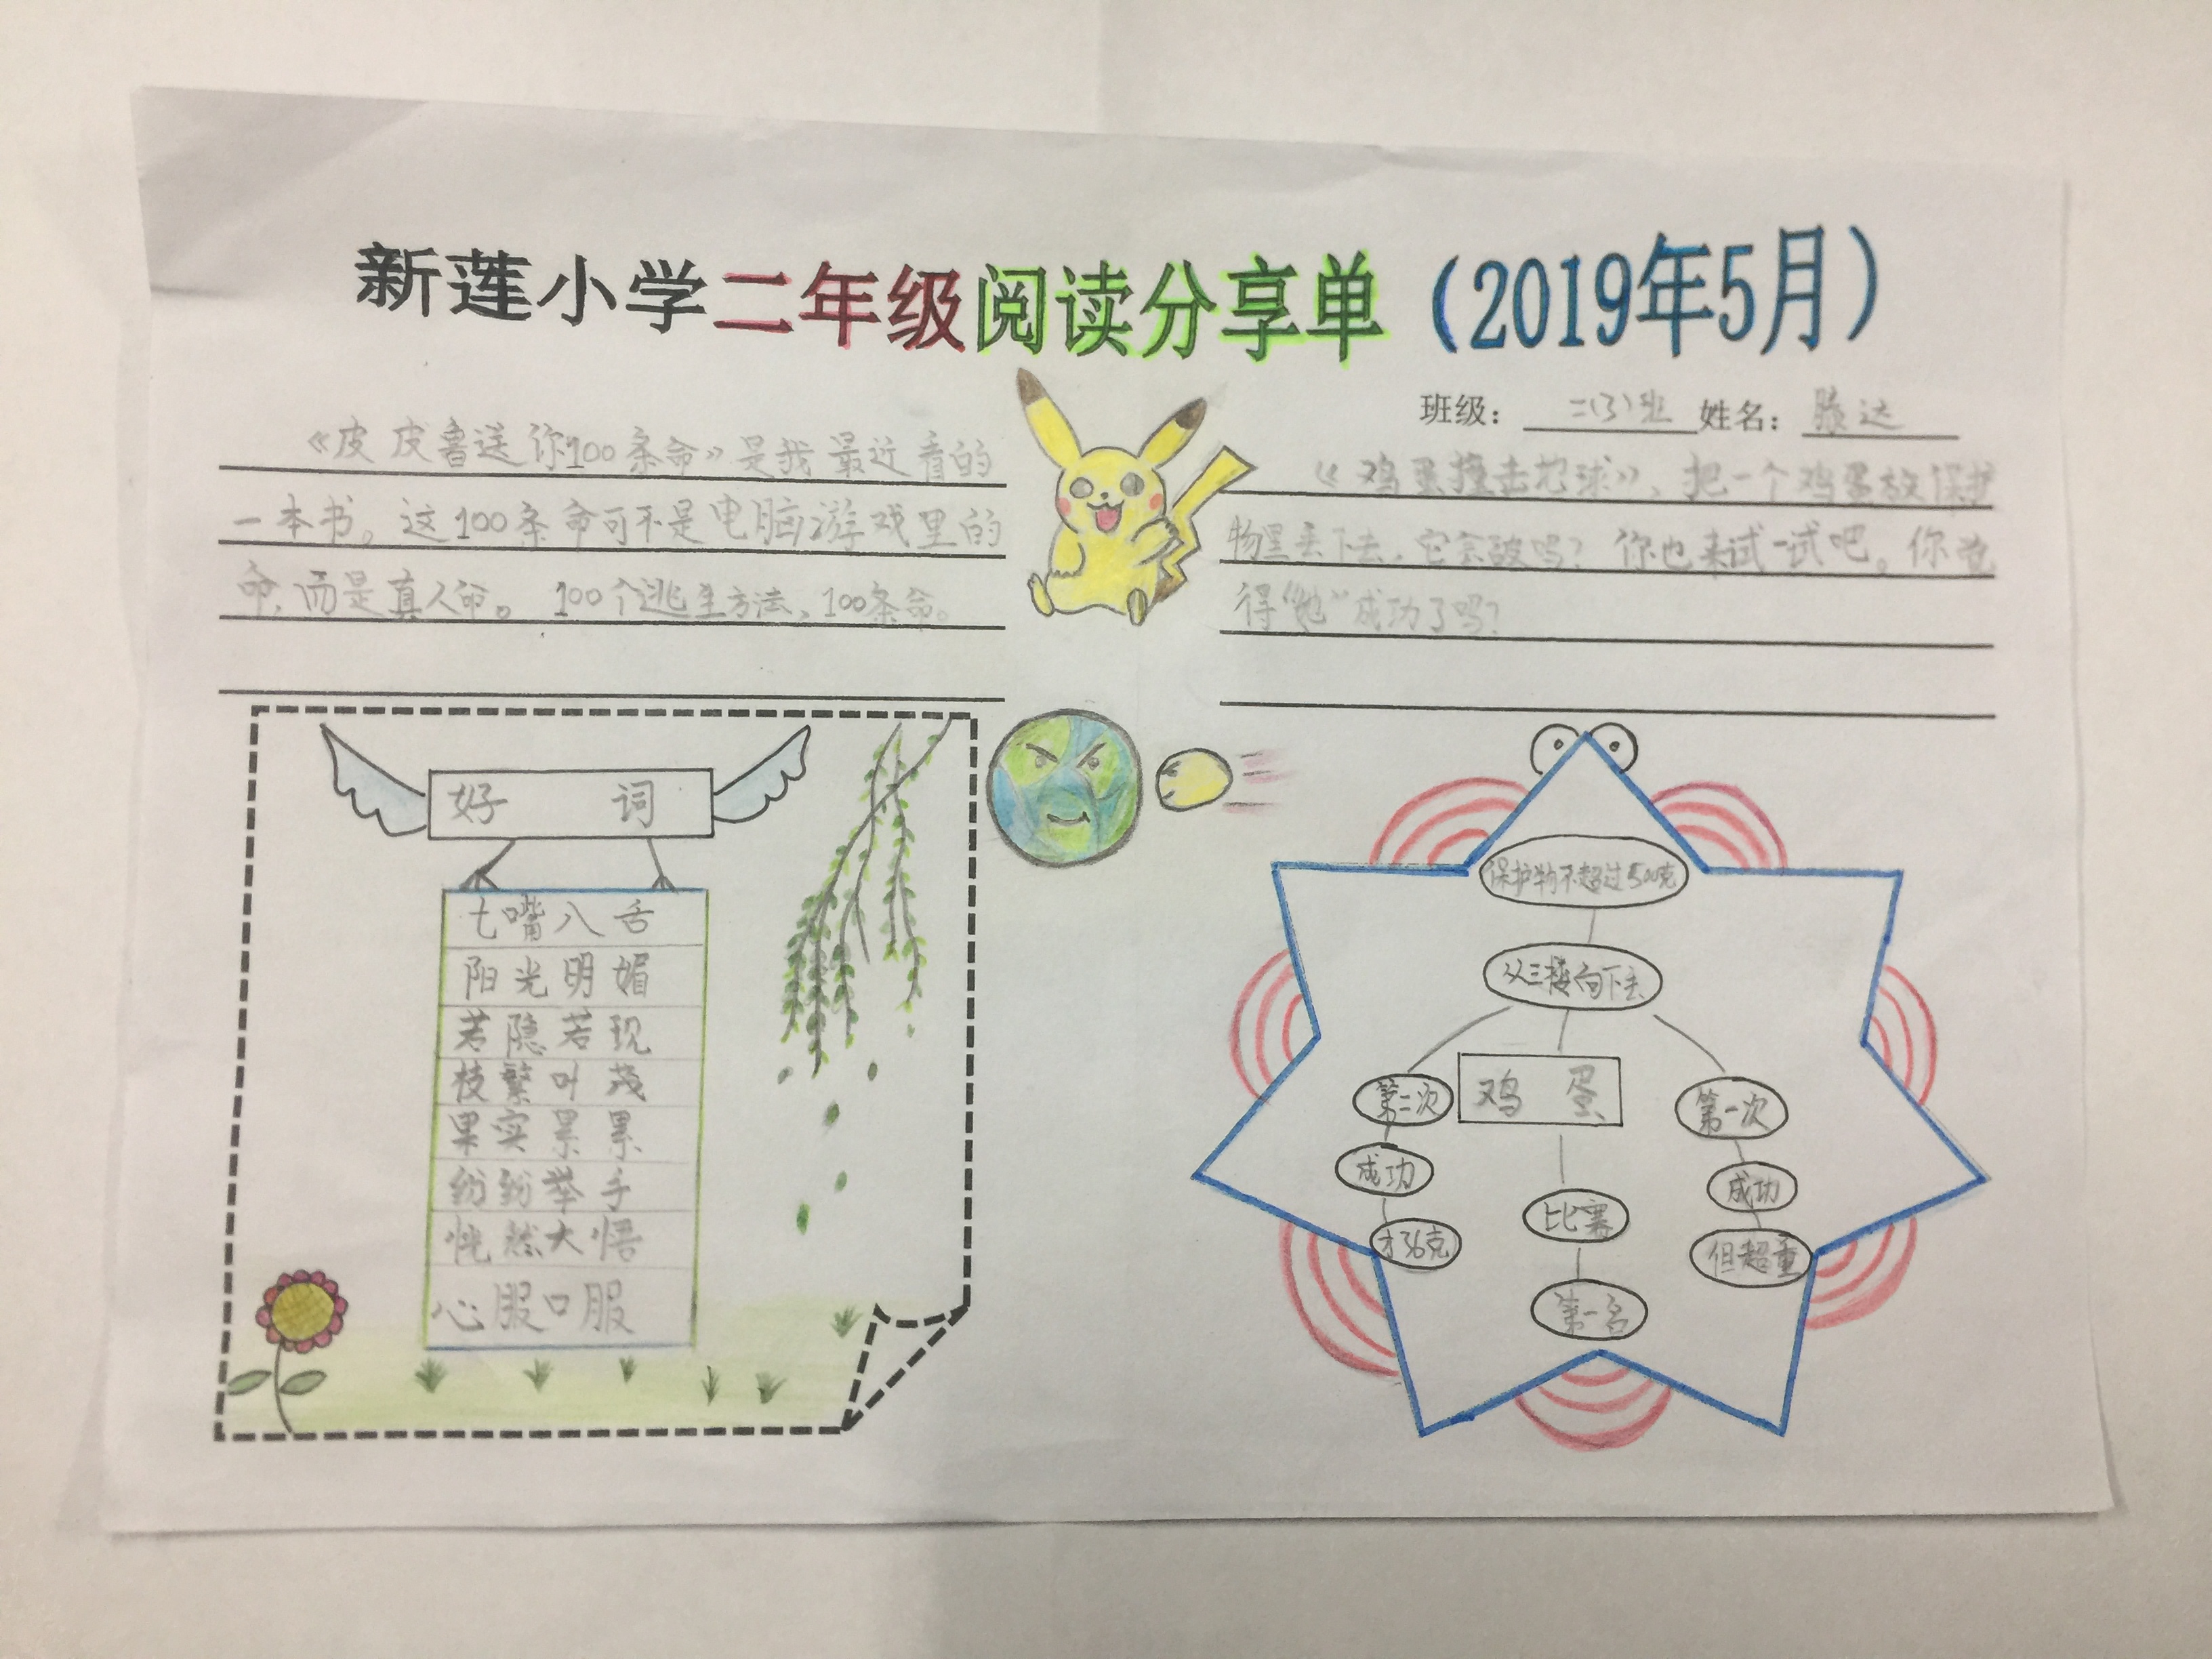 新莲小学二年级阅读分享单（2019年5月）
班级： 二(3)班 姓名： 滕达
《皮皮鲁送你100条命》是我最近看的
一本书。这100条命可不是电脑游戏里的
命，而是真人命。 100个逃生方法，100条命。
《鸡蛋撞击地球》，把一个鸡蛋放保护
物里丢下去，它会破吗？你也来试一试吧。你觉
得“她”成功了吗？
好 词
七嘴八舌
阳光明媚
若隐若现
枝繁叶茂
果实累累
纷纷举手
恍然大悟
心服口服
保护物不超过500克
从三楼向下丢
第二次
鸡 蛋
第一次
成功
成功
才36克
比赛
但超重
第一名